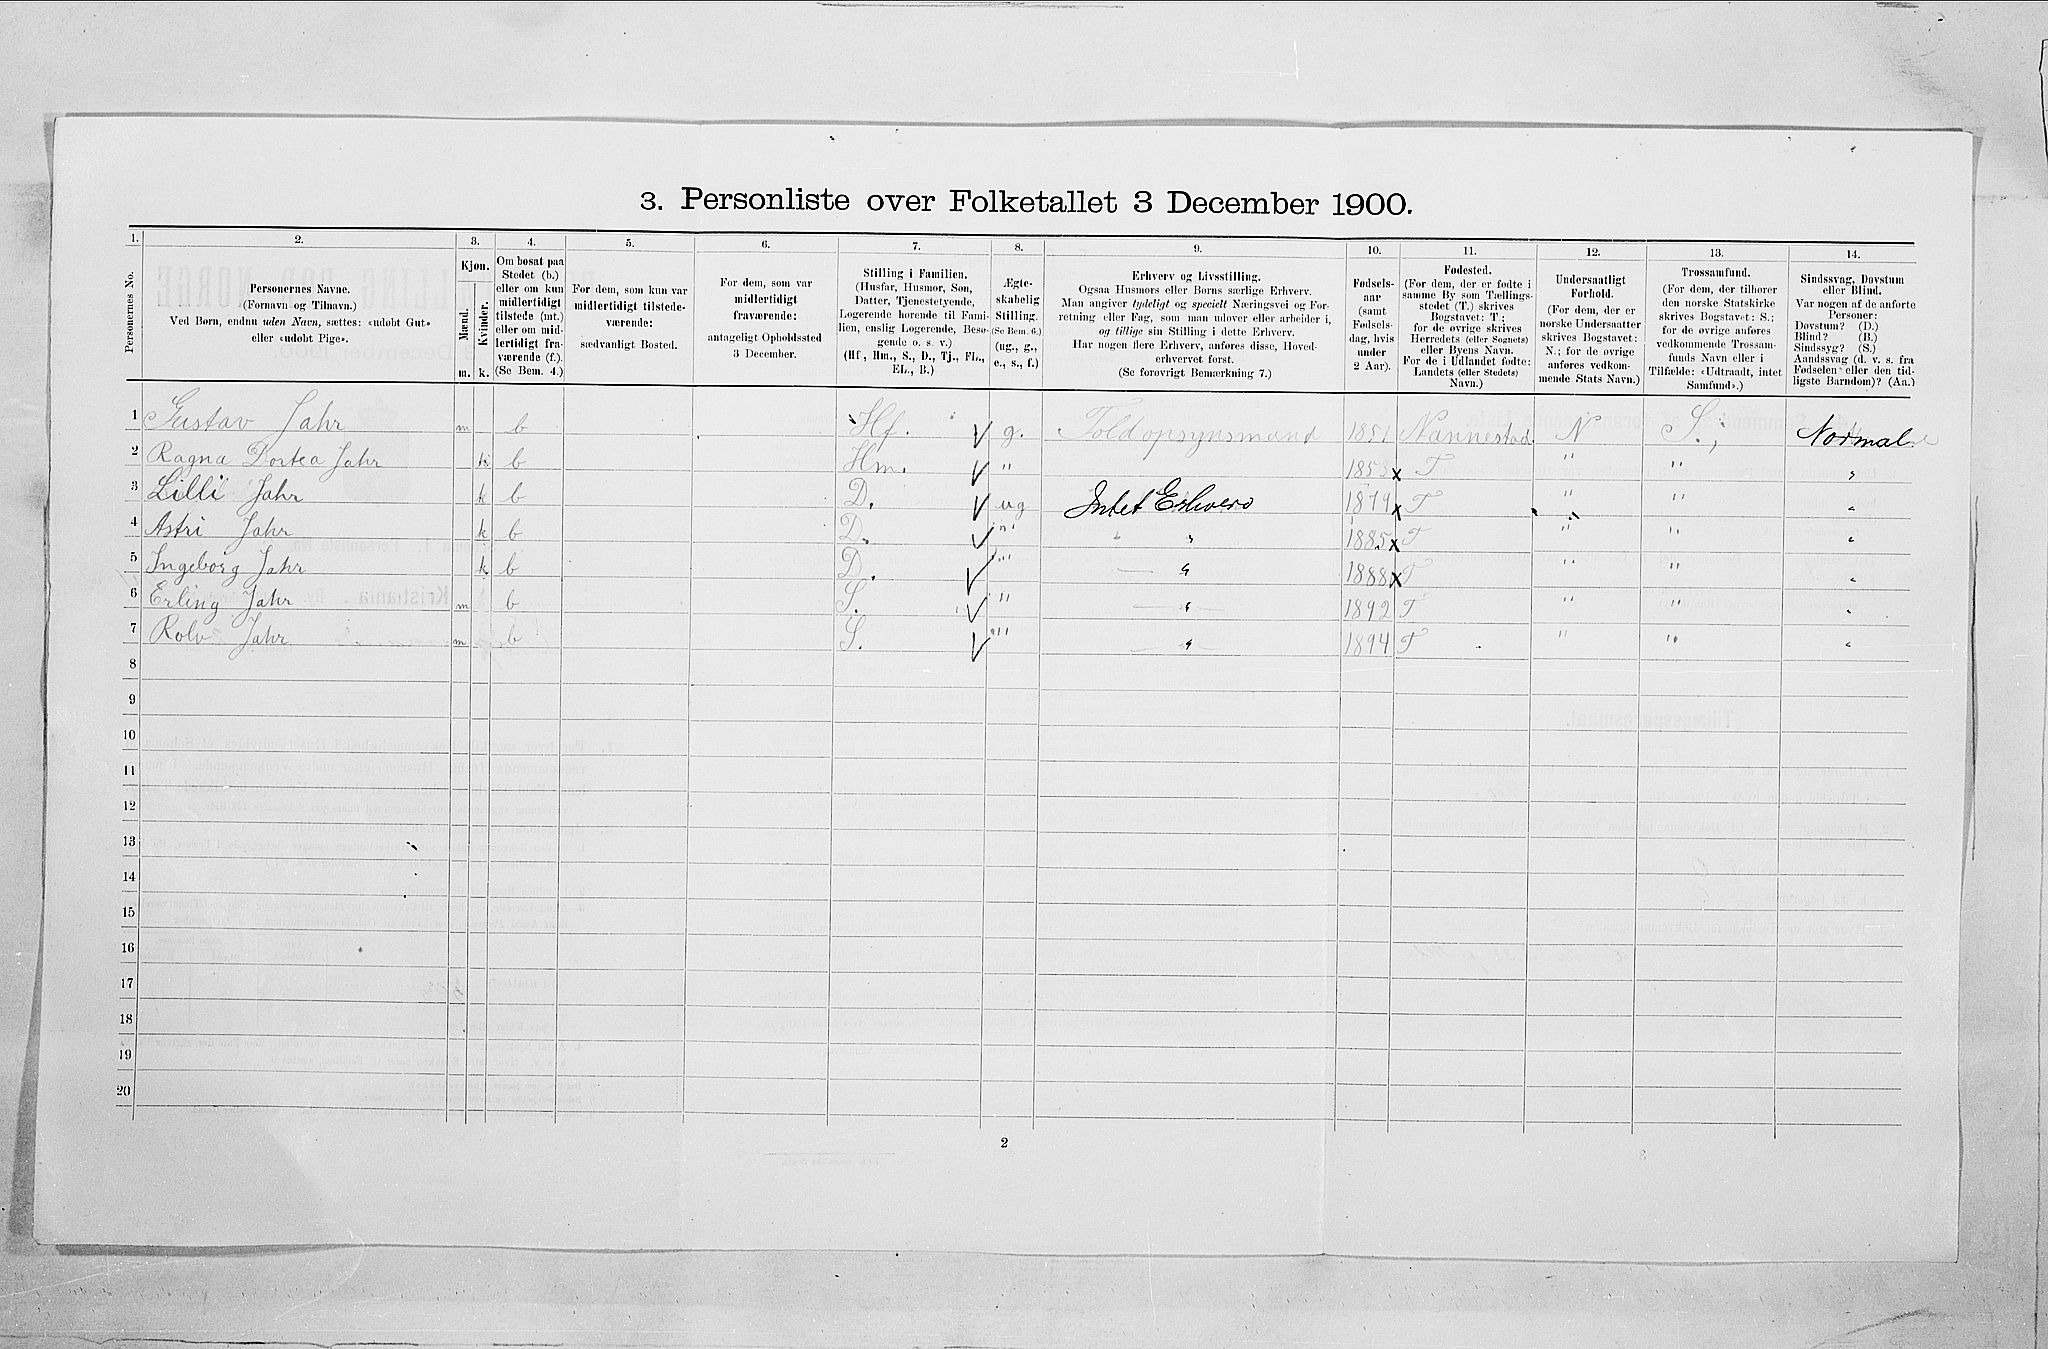 3. Personliste over Folketallet 3 December 1900.
1. 2. 3. 4. 5. 6. 7. 8. 9. 10. 11. 12. 13. 14.
Personernes No.
Personernes Navne.
(Fornavn og Tilnavn.)
Ved Børn, endnu uden Navn, sættes: «udøbt Gut»
eller «udøbt Pige».
Kjøn.
Mænd.
Kvinder.
m. k.
Om bosat paa
Stedet (b.)
eller om kun
midlertidigt
tilstede (mt.)
eller om mid-
lertidigt fra-
værende (f.).
(Se Bem. 4.)
For dem, som kun var
midlertidigt tilstede-
værende:
sædvanligt Bosted.
For dem, som var
midlertidigt
fraværende:
antageligt Opholdssted
3 December.
Stilling i Familien.
(Husfar, Husmor, Søn,
Datter, Tjenestetyende,
Logerende hørende til Fami-
lien, enslig Logerende, Besø-
gende o. s. v.)
(Hf., Hm., S., D., Tj., FL.,
EL., B.)
Ægte-
skabelig
Stilling.
(Se Bem. 6.)
(ug., g.,
e., s., f.)
Erhverv og Livsstilling.
Ogsaa Husmors eller Børns særlige Erhverv.
Man angiver tydeligt og specielt Næringsvei og For-
retning eller Fag, som man udøver eller arbeider i,
og tillige sin Stilling i dette Erhverv.
Har nogen flere Erhverv, anføres disse, Hoved-
erhvervet først.
(Se forøvrigt Bemærkning 7.)
Fødsels-
aar
(samt
Fødsels-
dag, hvis
under
2 Aar).
Fødested.
(For dem, der er fødte i
samme By som Tællings-
stedet (T.) skrives
Bogstavet: T.;
for de øvrige skrives
Herredets (eller Sognets)
eller Byens Navn.
For de i Udlandet fødte:
Landets (eller Stedets)
Navn.)
Undersaatligt
Forhold.
(For dem, der er
norske Undersaatter
skrives Bogstavet:
N.; for de øvrige
anføres vedkom-
mende Stats Navn.)
Trossamfund.
(For dem, der tilhører
den norske Statskirke
skrives Bogstavet: S.;
for de øvrige anføres
vedkommende Trossam-
funds Navn eller i
Tilfælde: «Udtraadt, intet
Samfund».)
Sindssvag, Døvstum
eller Blind.
Var nogen af de anførte
Personer:
Døvstum? (D.)
Blind? (B.)
Sindssyg? (S.)
Aandssvag (d. v. s. fra
Fødselen eller den tid-
ligste Barndom)? (Aa.)
1 Gustav Jahr m b Hf. g. Toldopsynsmand 1851 Nannestad N S. Normal
2 Ragna Dortea Jahr k b Hm. " 1853 T " " "
3 Lilli Jahr k b D. ug Intet Erhverv 1879 T " " "
4 Astri Jahr k b D. " " 1885 T " " "
5 Ingeborg Jahr k b D. " " 1888 T " " "
6 Erling Jahr m b S. " " 1892 T " " "
7 Rolv Jahr m b S. " " 1894 T " " "
8
9
10
11
12
13
14
15
16
17
18
19
20
2